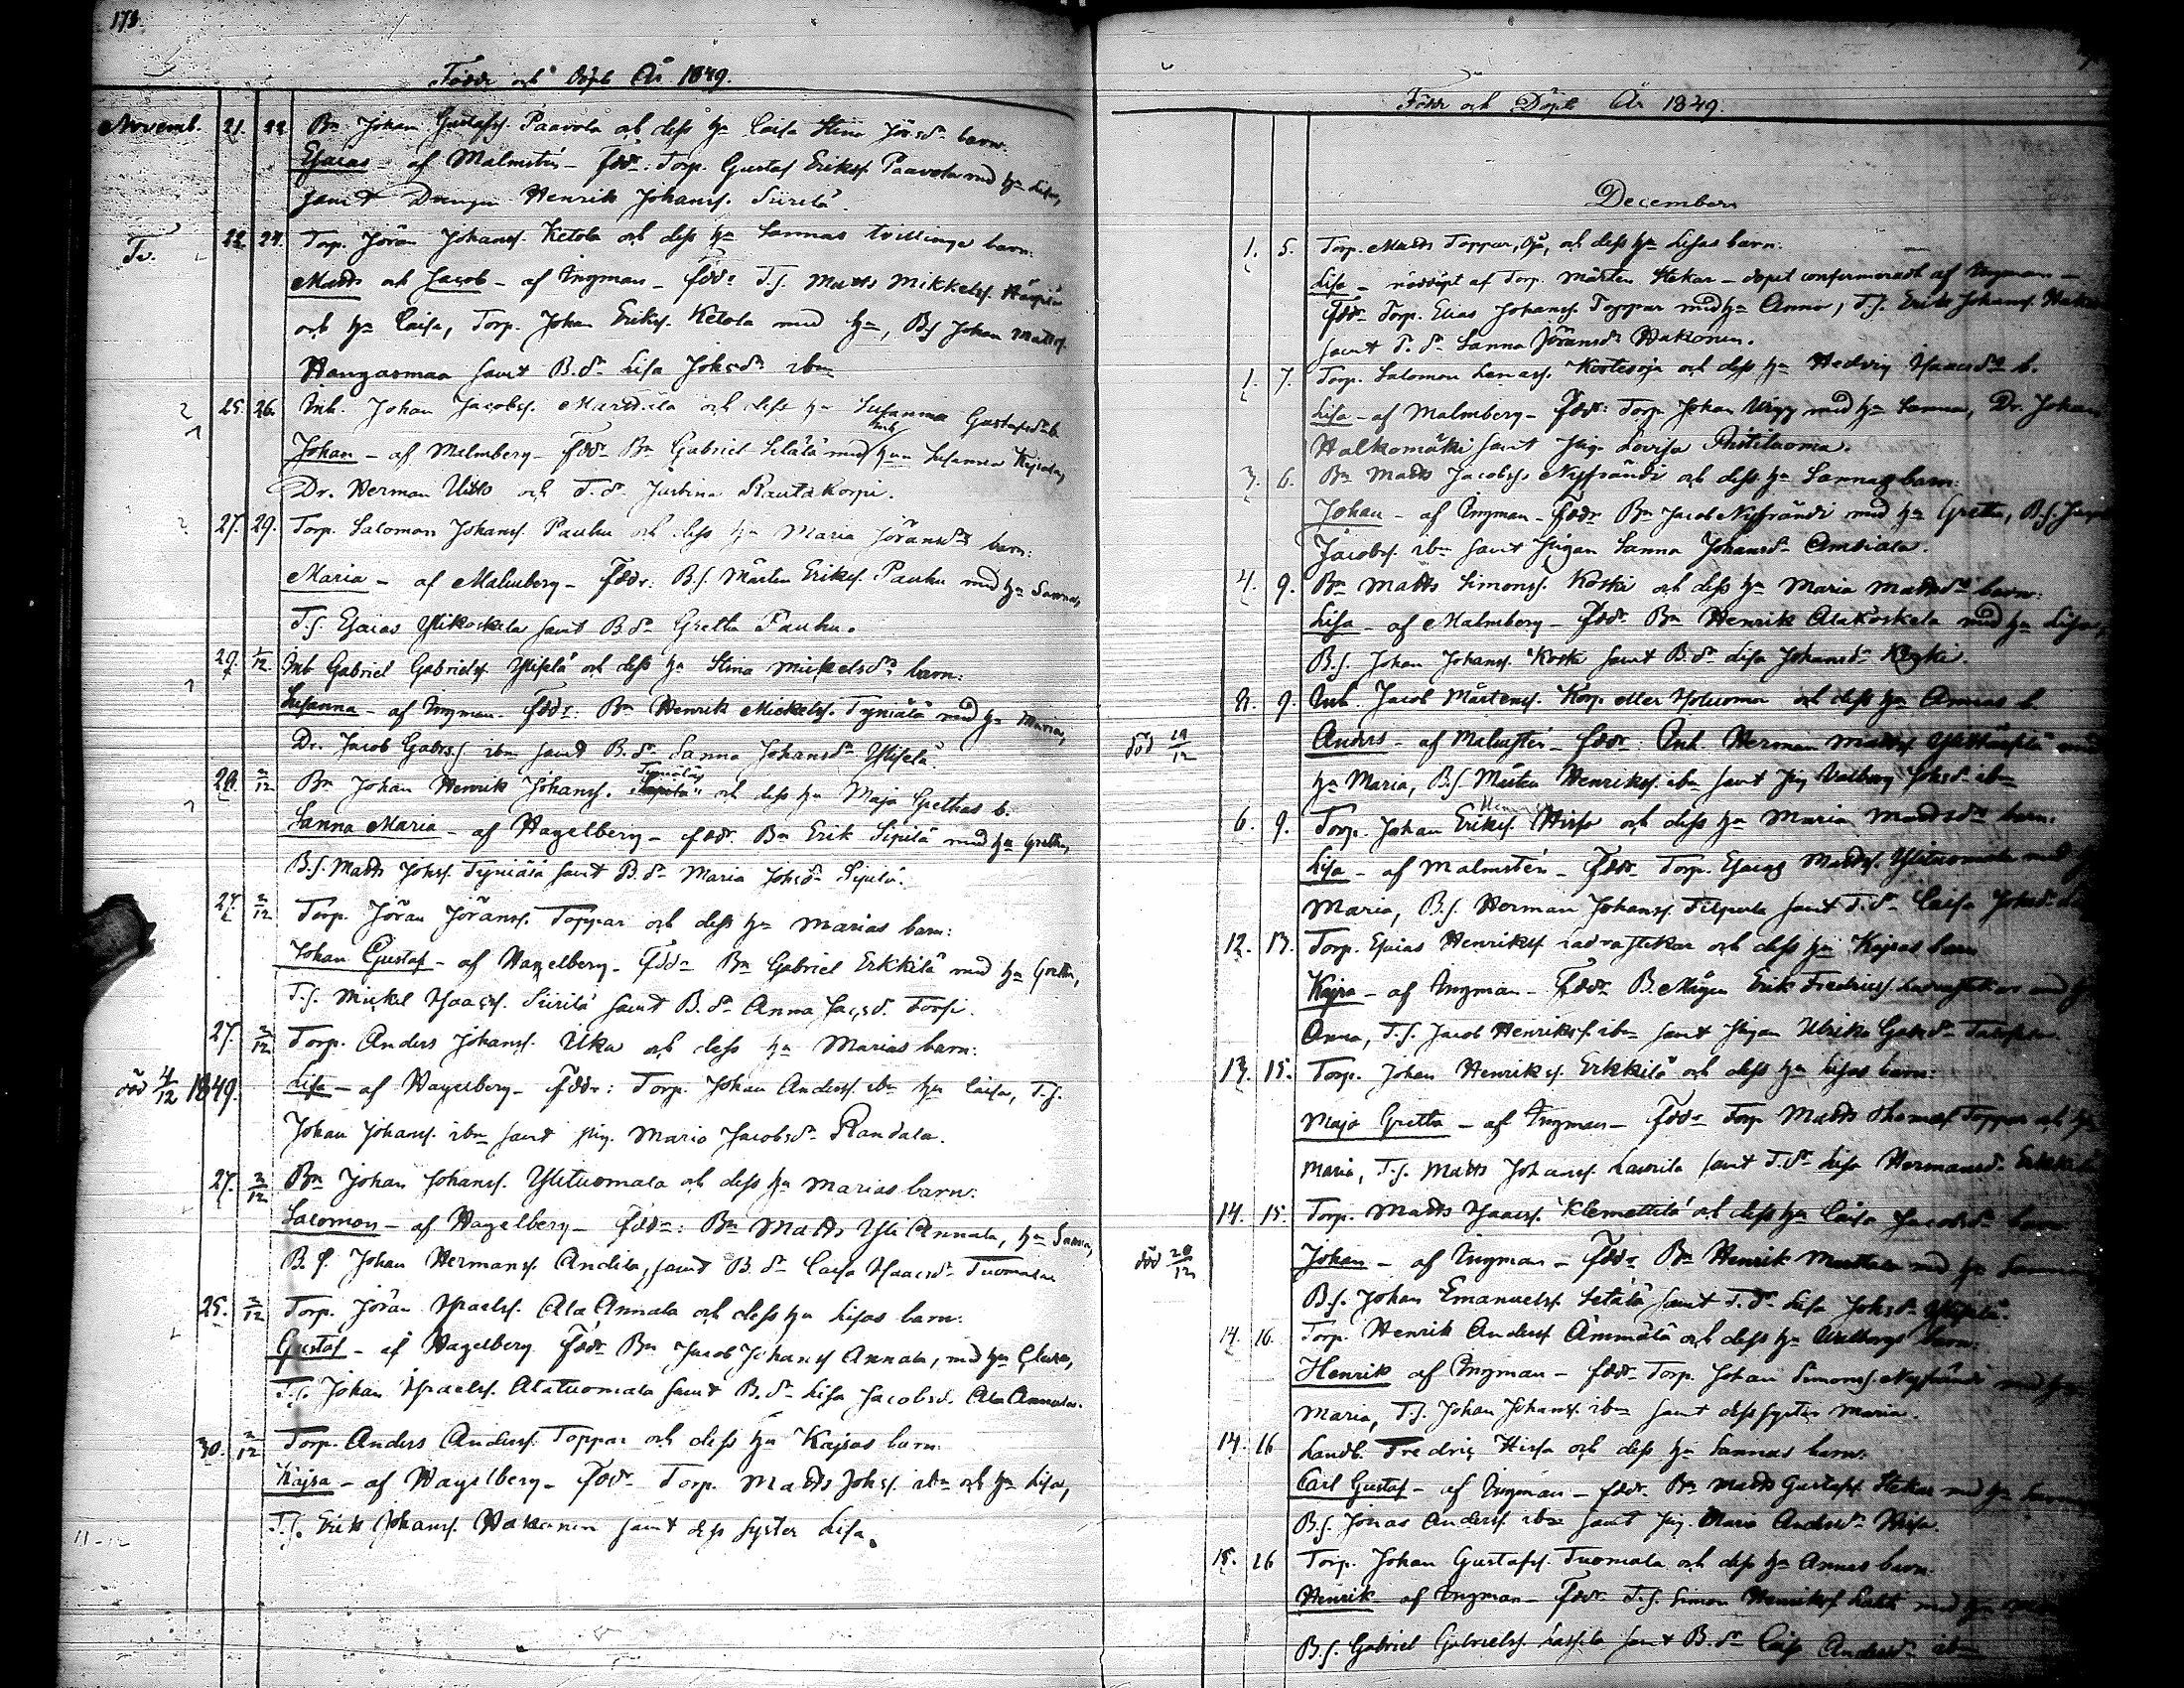 178.
Födde och Döpte År 1849.
Novemb. 21. 22. Bn Johan Gustafss. Paavola och dess hu Caisa Stina Jörsdrs barn:
Esaias - af Malmstén - Fddr: Torp. Gustaf Erikss. Paavola med hu Lisa,
samt Drengen Henrik Johanss. Siirilä.
Tv. 22. 24. Torp. Jöran Johanss. Ketola och dess hu Sannas tvillinge barn:
Matts och Jacob - af Ingman - Fddr T.s. Matts Mikkelss.
och hu Caisa, Torp. Johan Erikss. Ketola med hu, B.s Johan Mattss.
Hangasmaa samt B.dr Lisa Johsdr ibm
25. 26. Inh. Johan Jacobss. Marttila och dess hu Susanna Gustafsdrs b.
Johan - af Malmberg - Fddr Bn Gabriel Setälä med hu Susanna
Dr. Herman Uitto och T.dr Justina Rautakorpi.
27. 29. Torp. Salomon Johanss. Pauhu och dess hu Maria Göransdrs barn:
Maria - af Malmberg - Fddr: B.s. Mårten Erikss. Pauhu med hu Sanna,
T.s. Esaias Ylikoskela samt B.dr Gretha Pauhu.
29. 1/12 Inh Gabriel Gabrielss. Yliselä och dess hu Stina Mickelsdrs barn:
Susanna - af Ingman - Fddr: Bn Henrik Mickelss. Tyniälä med hu Maria,
Dr. Jacob Gabrss ibm samt B.dr Sanna Johansdr Ylipelä
28. 2/12 Bn Johan Henrik Johanss. och dess hu Maja Grethas b.
Sanna Maria - af Hagelberg - fddr. Bn Erik Sipilä med hu Gretha,
B.s. Matts Johss. Tyniälä samt B.dr Maria Johsdr Sipilä.
27. 2/12 Torp. Jöran Jöranss. Toppar och dess hu Marias barn:
Johan Gustaf - af Hagelberg - Fddr Bn Gabriel Erkkilä med hu Gretha,
T.s. Mickel Isaacss. Siirilä samt B.dr Anna Jacsd.
27. 2/12 Torp. Anders Johanss. Uka och dess hu Marias barn:
död 4/12 1849. Lisa - af Hagelberg - Fddr: Torp. Johan Anderss. ibm hu Caisa, T.s.
Johan Johanss. ibm samt pig. Maria Jacobsdr Randala.
27. 2/12 Bn Johan Johanss. Ylituomala och dess hu Marias barn:
Salomon - af Hagelberg - fddr: Bn Matts Yli Annala, hu Sanna,
B.S. Johan Hermanss. Andila, samt B.dr Caisa Isaacsdr Tuomala
25. 2/12 Torp. Jöran Israelss. Ala Annala och dess hu Lisas barn:
Gustaf - af Hagelberg Fddr Bn Jacob Johanss Annala, med hu Clara,
T.s. Johan Israelss. Alatuomala samt B.dr Lisa Jacobsd. Ala Annala.
30. 2/12 Torp. Anders Anderss. Toppar och dess hu Kajsas barn:
Kajsa - af Hagelberg - Fddr Torp. Matts Johss. ibm och hu Lisa,
T.s. Erik Johanss. Hakonen samt dess syster Lisa.
11-12
Födde och Döpte År 1849.
December
1. 5. Torp. Matts Toppar, och dess hu Lisas barn:
Lisa - nöddöpt af Torp. Mårten Stekar - dopet confirmeradt af Ingman -
Fddr Torp. Elias Johanss. Toppar med hu Anna, T.s. Erik Johanss.
samt T.dr Sanna Jöransdr Hakonen.
1. 7. Torp. Salomon Kortesoja och dess hu Hedvig Isaacsdrs b.
Lisa - af Malmberg - Fddr: Torp. Johan med hu Sanna, Dr. Johan
Halkomäki samt pig. Lovisa Antiluoma.
3. 6. Bn Matts Jacobss Nissrändi och dess hu Sannas barn:
Johan - af Ingman - Fddr Bn Jacob Nissrändi med hu Gretha, B.s.
Jacobss. ibm samt pigan Sanna Johansdr Anttiala.
4. 9. Bn Matts Simonss. Koski och dess hu Maria Mattsdrs barn:
Lisa - af Malmberg - Fddr. Bn Henrik Alakoskela med hu Lisa,
B.s. Johan Johanss. Koski samt B.dr Lisa Johansdr
8. 9. Inh. Jacob Mårtenss. Korp. eller och dess hu Annas b.
död 19/12 Anders - af Malmstén - Fddr: Inh. Herman Mattss.
hu Maria, B.s. Matts Henrikss. ibm samt pig Valborg Johsdr ibm
6. 9. Torp. Johan Erikss. Hirsi och dess hu Maria Mattsdrs barn:
Lisa - af Malmstén - Fddr Torp. Esaias Mattss. Ylituomala med
Maria, B.s. Herman Johanss. samt T.dr Caisa Johsdr
12. 13. Torp. Esaias Henrikss och dess hu Kajsas barn
Kajsa - af Ingman - Fddr B.mågen Erik Fredrikss.
Anna, T.s. Jacob Henrikss. ibm samt pigan Ulrika Gabrdr
13. 15. Torp. Johan Henrikss. Erkkilä och dess hu Lisas barn:
Maja Gretha - af Ingman - Fddr Torp Matts Thomass Toppar och hu
Maria, T.s. Matts Johanss. Laurila samt T.dr Lisa Hermansdr
14. 15. Torp. Matts Isaacss. Klemettilä och dess hu Caisa Jacobsdrs barn
död 20/12 Johan - af Ingman - Fddr Bn Henrik med hu
B.s. Johan Emanuelss. Setälä samt T.dr Lisa Johsdr
14. 16. Torp. Henrik Anderss. Ämmälä och dess hu Walborgs barn:
Henrik af Ingman - fddr Torp. Johan Simonss. med hu
Maria, T.s. Johan Johanss. ibm samt dess syster Maria.
14. 16 Landb. Fredric Hirsi och dess hu Sannas barn:
Carl Gustaf - af Ingman - fddr. Bn Matts Gustafss. Stekar med hu
B.s. Jonas Anderss. ibm samt pig. Maria Andersdr
15. 26 Torp. Johan Gustafss. Tuomala och dess hu Annas barn:
Henrik af Ingman - Fddr. T.s. Simon Henrikss. med hu
B.s. Gabriel Gabrielss. Lassila samt B.dr Caisa Andersdr ibm